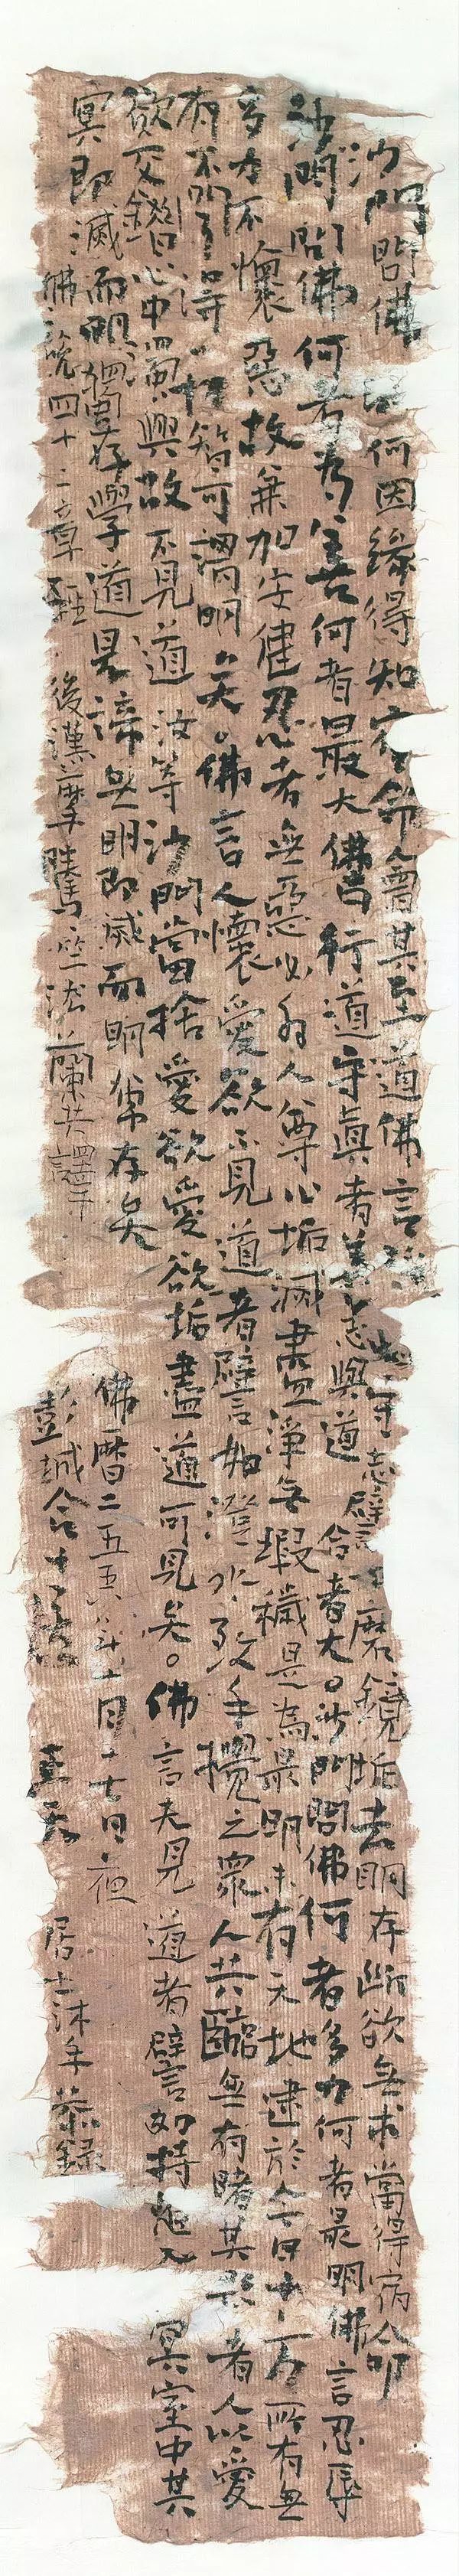 沙門問佛以何因緣得知宿命會其至道佛言 守志譬 磨鏡垢去明存斷欲無求當得宿命
沙門問佛何者為善何者最大佛言行道守真者善志與道合者大。沙門問佛何者多力何者最明佛言忍辱
多力不懷惡故兼加安健忍者無惡必為人尊心垢滅盡淨無瑕穢是為最明未有天地逮於今日十方所有無
有不 得一切智可謂明矣。佛言人懷愛欲不見道者譬如澄水致手攪之眾人共臨無有睹其影者人以愛
欲交錯心中濁興故不見道汝等沙門當捨愛欲愛欲垢盡道可見矣。佛言夫見道者譬如持炬入冥室中其
冥即滅而明獨存學道見諦無明即滅而明常存矣
佛說四十二章經 後漢摩騰竺法蘭共譯
佛曆二五五六年 月十七日夜
彭城 居士沐手恭錄